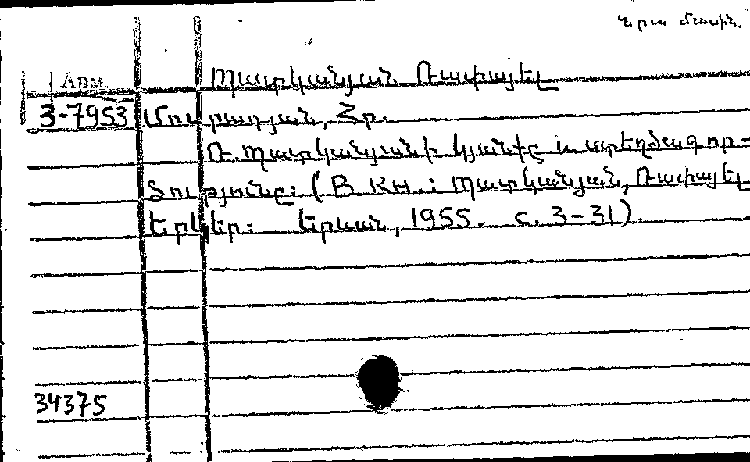 Նրա մասին
Арм.
Պատկանյան Ռափայել
3-7953 Մուրադյան, Հր.
Ռ. Պատկանյանի կյանքը և ստեղծագոր-
ծությունը: (В кн.: Պատկանյան, Ռափայել
Երկեր. Երևան, 1955. с. 3-31)
34375